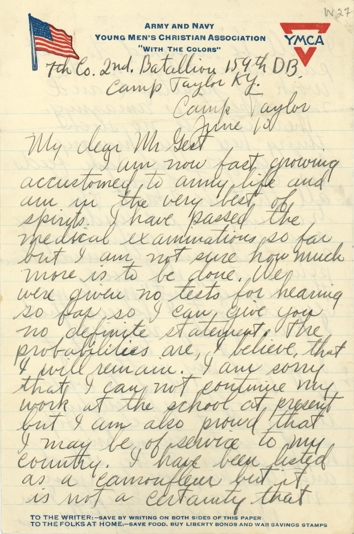 W27
ARMY AND NAVY
YOUNG MEN'S CHRISTIAN ASSOCIATION
"WITH THE COLORS"
YMCA
7th Co. 2nd. Batallion 159th DB.
Camp Taylor Ky.
Camp Taylor
June
My dear Mr Gest
I am now fast growing
accustomed to army life and
am in the very best of
spirits. I have passed the
medical examinations so far
but I am not sure how much
more is to be done. We
were given no tests for hearing
so far so I can give you
no definite statement. The
probabilities are, I believe, that
I will remain. I am sorry
that I can not continue my
work at the school at present
but I am also proud that
I may be of service to my
country. I have been listed
as a camoufleur but it
is not a certainty that
TO THE WRITER:—SAVE BY WRITING ON BOTH SIDES OF THIS PAPER
TO THE FOLKS AT HOME.—SAVE FOOD, BUY LIBERTY BONDS AND WAR SAVINGS STAMPS